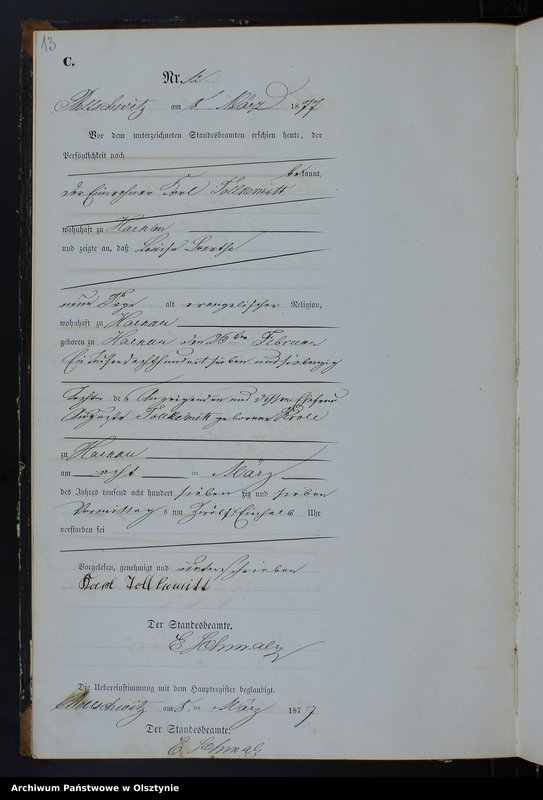 13
C.
Nr. 12.
am 8 März 1877
Vor dem unterzeichneten Standesbeamten erschien heute, der
Persönlichkeit nach
bekannt,
der Einwohner Karl Tollkemitt
wohnhaft zu Harnau
und zeigte an, daß Louise Bertha
neun Tage alt evangelischer Religion,
wohnhaft zu Harnau
geboren zu Harnau den 26ten Februar
Ein tausend achthundert sieben und siebenzig
Tochter des Anzeigenden und dessen Ehefrau
Auguste Tollkemitt geborene
zu Harnau
am acht ten März
des Jahres tausend acht hundert sieben zig und sieben
Vormittag s um Uhr
verstorben sei
Vorgelesen, genehmigt und unterschrieben
Karl Tollkemitt
Der Standesbeamte.
E Schmalz
Die Uebereinstimmung mit dem Hauptregister beglaubigt.
am 8. ten März 1877
Der Standesbeamte:
E. Schmalz
Archiwum Państwowe w Olsztynie